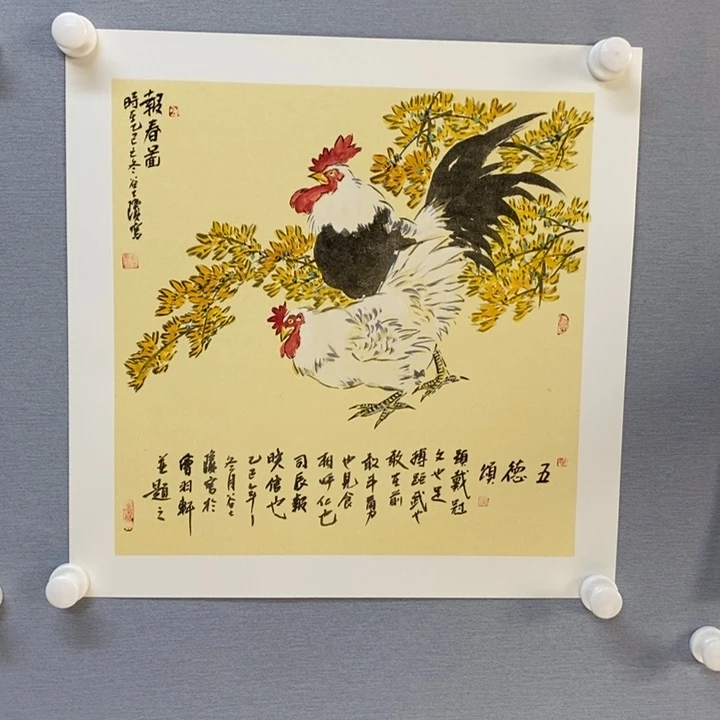 報春圖
時在乙巳之冬谷士寫
五德頌
頭戴冠
文也足
搏距武也
敌在前
敢斗勇
也見食
相呼仁也
司辰報
曉信也
乙巳年
冬月谷士
寫於
羽軒
並題之